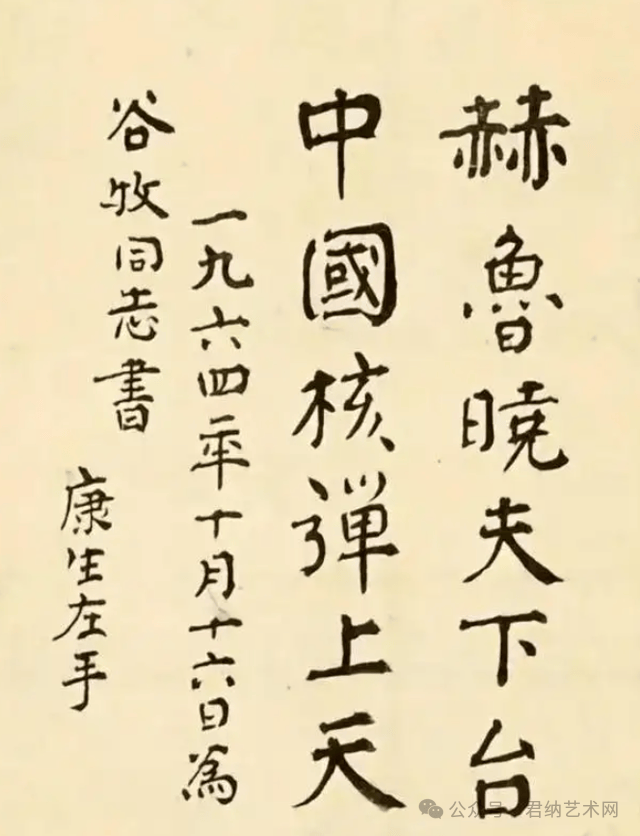 赫魯曉夫下台
中國核弹上天
一九六四年十月十六日為
谷牧同志書
康生左手
公众号·君纳艺术网